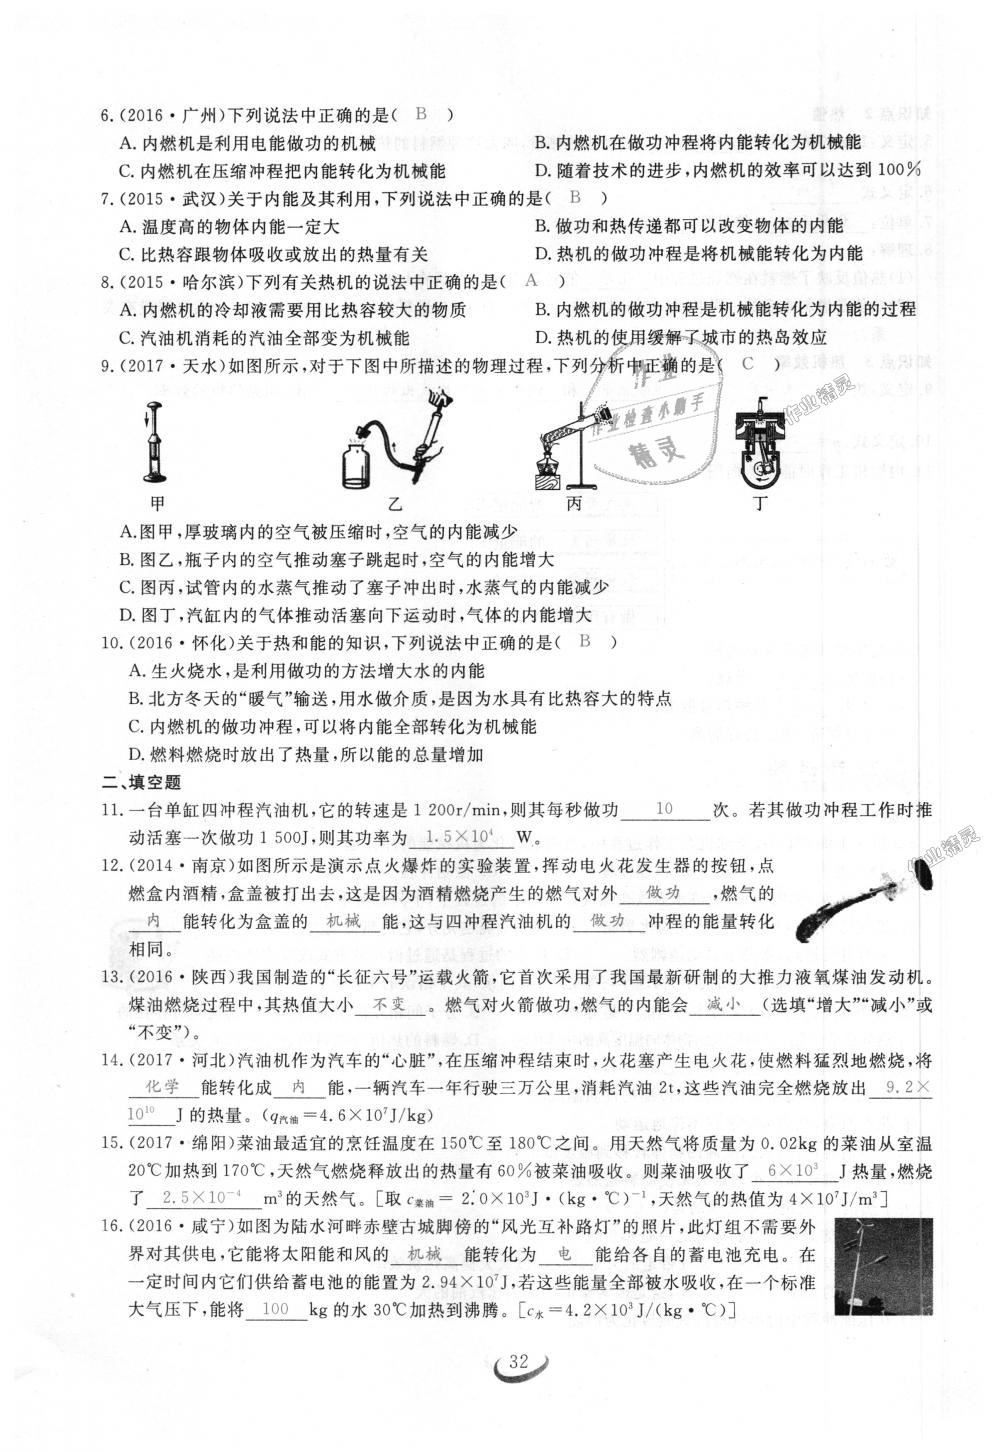 6.(2016·广州)下列说法中正确的是( B )
A.内燃机是利用电能做功的机械 B.内燃机在做功冲程将内能转化为机械能
C.内燃机在压缩冲程把内能转化为机械能 D.随着技术的进步,内燃机的效率可以达到100%
7.(2015·武汉)关于内能及其利用,下列说法中正确的是( B )
A.温度高的物体内能一定大 B.做功和热传递都可以改变物体的内能
C.比热容跟物体吸收或放出的热量有关 D.热机的做功冲程是将机械能转化为内能
8.(2015·哈尔滨)下列有关热机的说法中正确的是( A )
A.内燃机的冷却液需要用比热容较大的物质 B.内燃机的做功冲程是机械能转化为内能的过程
C.汽油机消耗的汽油全部变为机械能 D.热机的使用缓解了城市的热岛效应
9.(2017·天水)如图所示,对于下图中所描述的物理过程,下列分析中正确的是( C )
作业
作业检查小助手
精灵
作业精灵
甲 乙 丙 丁
A.图甲,厚玻璃内的空气被压缩时,空气的内能减少
B.图乙,瓶子内的空气推动塞子跳起时,空气的内能增大
C.图丙,试管内的水蒸气推动了塞子冲出时,水蒸气的内能减少
D.图丁,汽缸内的气体推动活塞向下运动时,气体的内能增大
10.(2016·怀化)关于热和能的知识,下列说法中正确的是( B )
A.生火烧水,是利用做功的方法增大水的内能
B.北方冬天的“暖气”输送,用水做介质,是因为水具有比热容大的特点
C.内燃机的做功冲程,可以将内能全部转化为机械能
D.燃料燃烧时放出了热量,所以能的总量增加
二、填空题
11.一台单缸四冲程汽油机,它的转速是1 200r/min,则其每秒做功 10 次。若其做功冲程工作时推
动活塞一次做功1 500J,则其功率为 1.5×10⁴ W。
12.(2014·南京)如图所示是演示点火爆炸的实验装置,挥动电火花发生器的按钮,点
燃盒内酒精,盒盖被打出去,这是因为酒精燃烧产生的燃气对外 做功 ,燃气的
内 能转化为盒盖的 机械 能,这与四冲程汽油机的 做功 冲程的能量转化
相同。
作业精灵
13.(2016·陕西)我国制造的“长征六号”运载火箭,它首次采用了我国最新研制的大推力液氧煤油发动机。
煤油燃烧过程中,其热值大小 不变 。燃气对火箭做功,燃气的内能会 减小 (选填“增大”“减小”或
“不变”)。
14.(2017·河北)汽油机作为汽车的“心脏”,在压缩冲程结束时,火花塞产生电火花,使燃料猛烈地燃烧,将
化学 能转化成 内 能,一辆汽车一年行驶三万公里,消耗汽油2t,这些汽油完全燃烧放出 9.2×
10¹⁰ J的热量。(q汽油=4.6×10⁷J/kg)
15.(2017·绵阳)菜油最适宜的烹饪温度在150℃至180℃之间。用天然气将质量为0.02kg的菜油从室温
20℃加热到170℃,天然气燃烧释放出的热量有60%被菜油吸收。则菜油吸收了 6×10³ J热量,燃烧
了 2.5×10⁻⁴ m³的天然气。[取c菜油=2.0×10³J·(kg·℃)⁻¹,天然气的热值为4×10⁷J/m³]
16.(2016·咸宁)如图为陆水河畔赤壁古城脚傍的“风光互补路灯”的照片,此灯组不需要外
界对其供电,它能将太阳能和风的 机械 能转化为 电 能给各自的蓄电池充电。在
一定时间内它们供给蓄电池的能置为2.94×10⁷J,若这些能量全部被水吸收,在一个标准
大气压下,能将 100 kg的水30℃加热到沸腾。[c水=4.2×10³J/(kg·℃)]
32